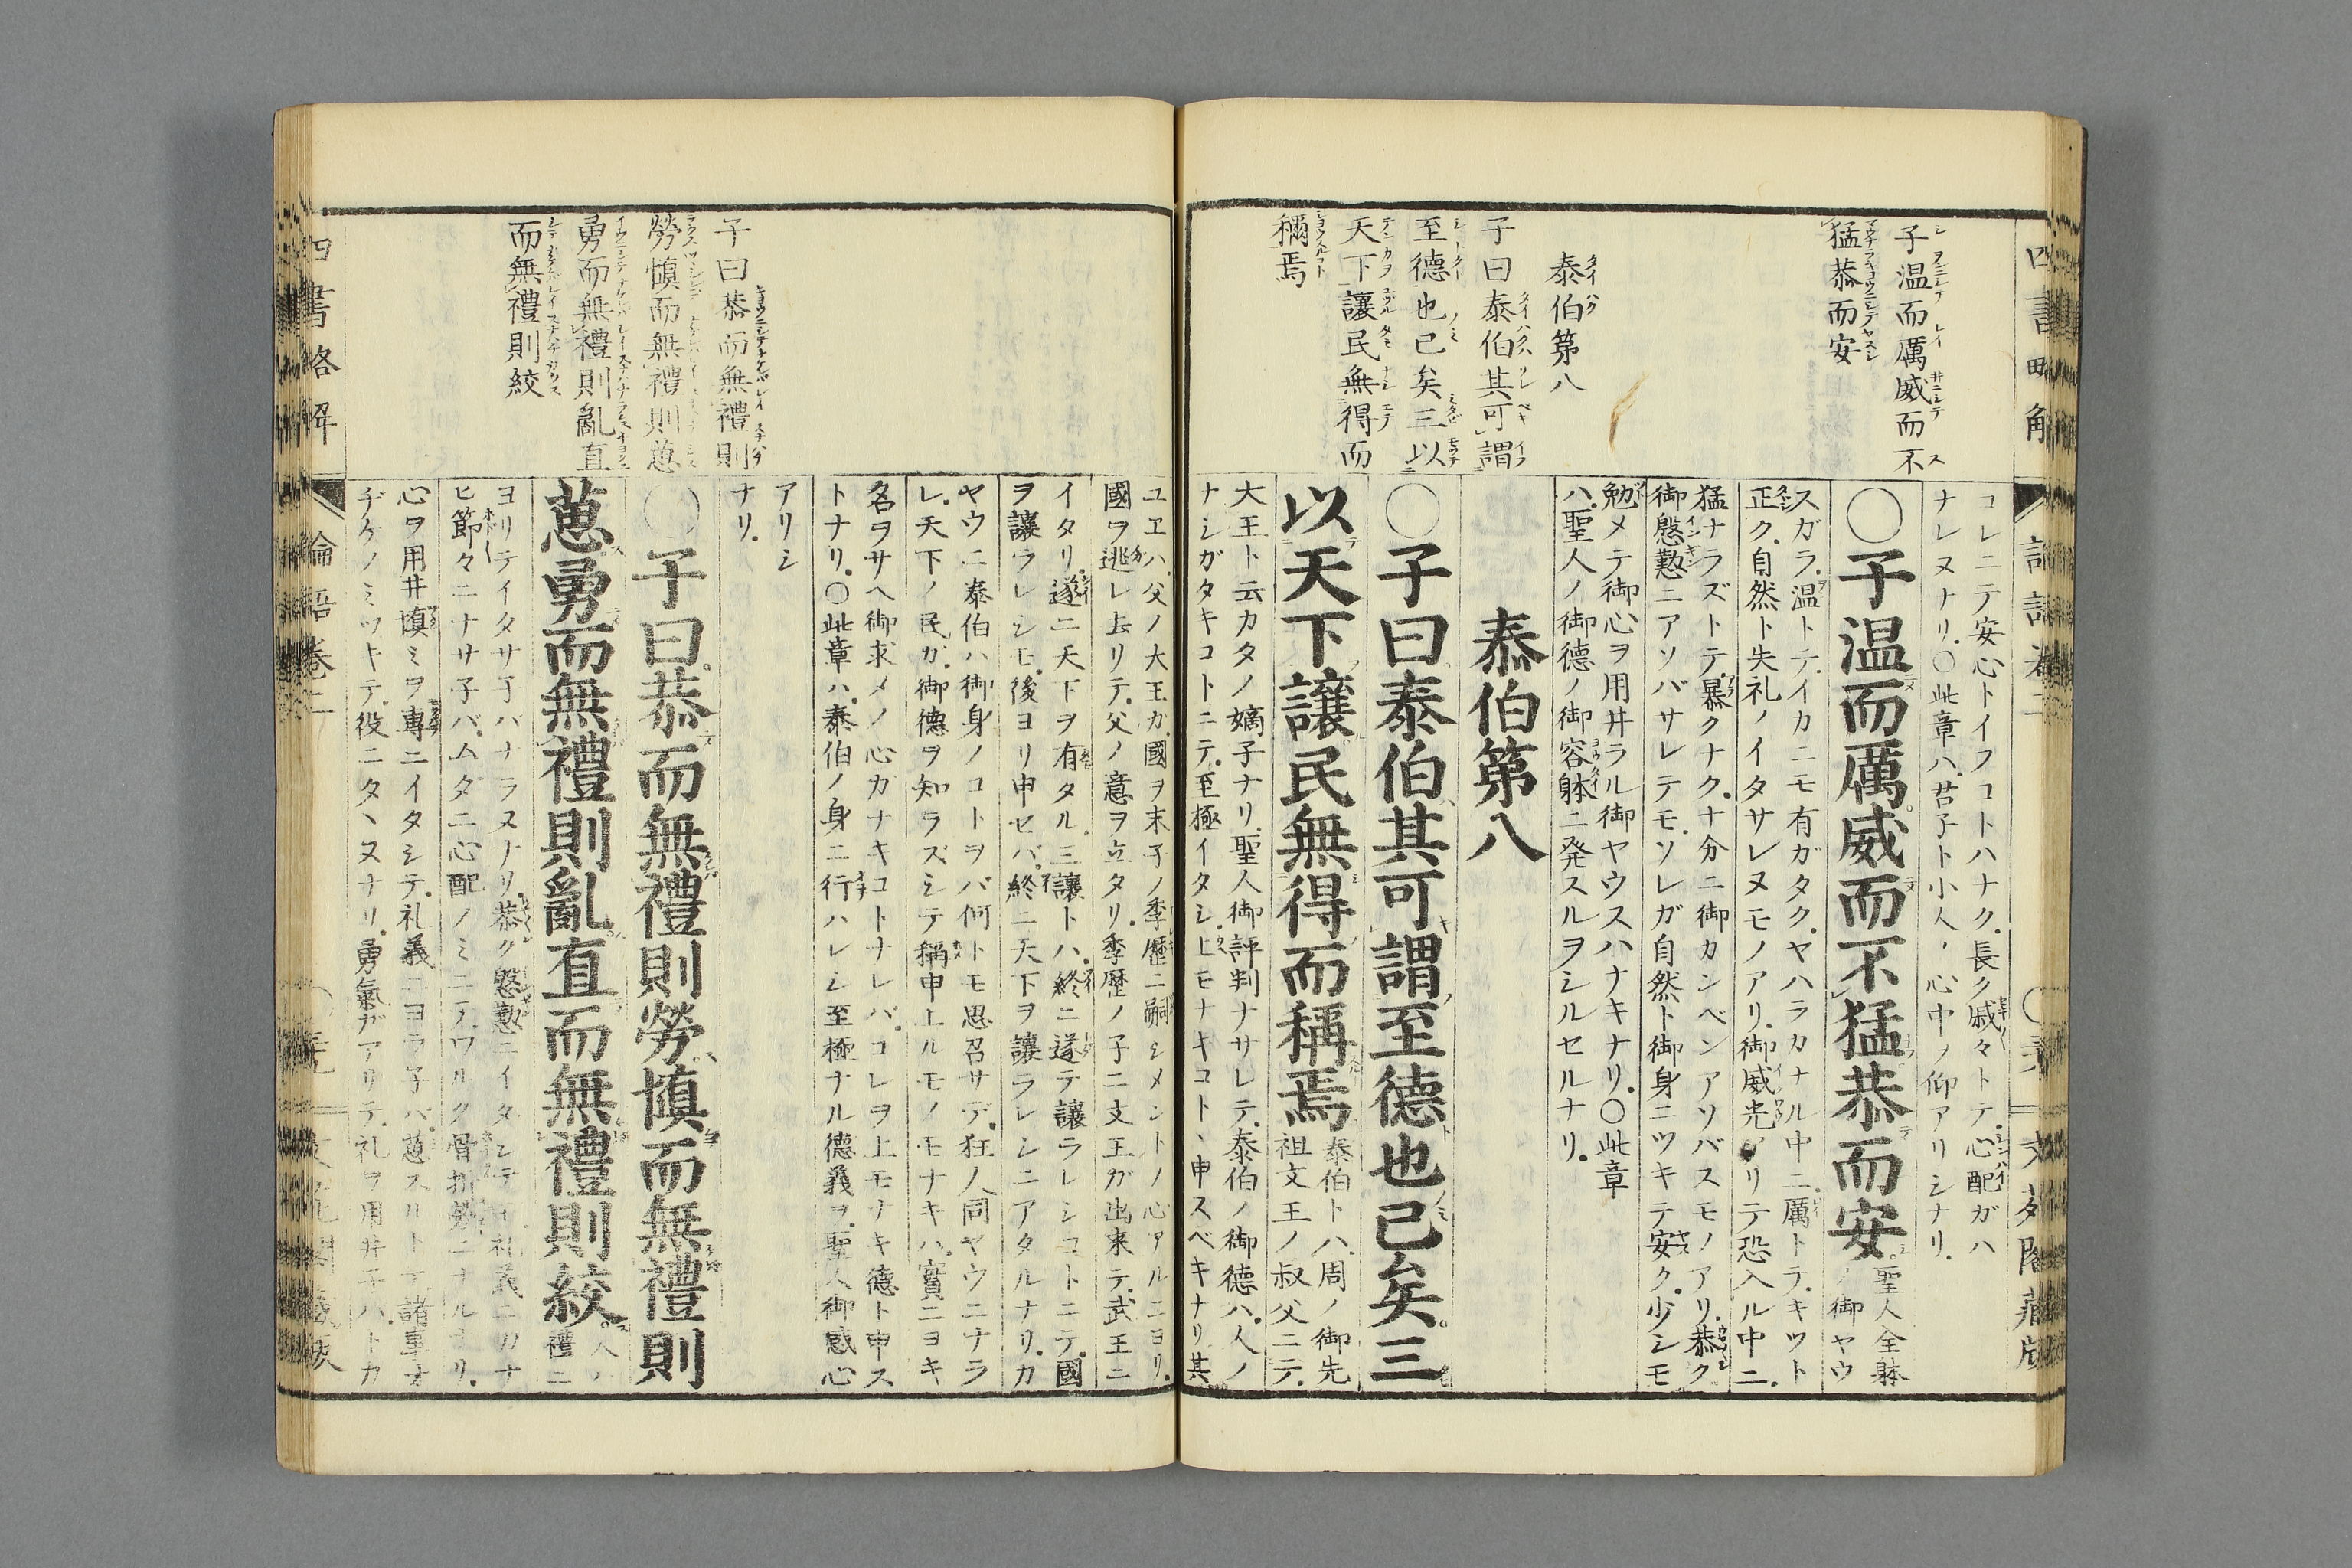 子温而厲威而不
猛恭而安
泰伯第八
子曰泰伯其可謂
至德也已矣三以
天下讓民無得而
稱焉
コレニテ安心トイフコトハナク長ク戚々トテ心配ガハ
ナレヌナリ○此章ハ君子ト小人ノ心中ヲ仰アリシナリ
○子温而厲威而不猛恭而安
聖人全躰
ノ御ヤウ
スガラ温トテイカニモ有ガタクヤハラカナル中ニ厲トテキツト
正ク自然ト失礼ノイタサレヌモノアリ御威光アリテ恐入ル中ニ
猛ナラズトテ暴クナクナ分ニ御カンベンアソバスモノアリ恭ク
御慇懃ニアソバサレテモソレガ自然ト御身ニツキテ安ク少シモ
勉メテ御心ヲ用井ラル御ヤウスハナキナリ○此章
ハ聖人ノ御德ノ御容躰ニ発スルヲシルセルナリ
泰伯第八
○子曰泰伯其可謂至德也已矣三
以天下讓民無得而稱焉
泰伯トハ周ノ御先
祖文王ノ叔父ニテ
大王ト云カタノ嫡子ナリ聖人御評判ナサレテ泰伯ノ御德ハ人ノ
ナシガタキコトニテ至極イタシ上モナキコトヽ申スベキナリ其
ユヱハ父ノ大王カ國ヲ末子ノ季歴ニ嗣シメントノ心アルニヨリ
國ヲ逃レ去リテ父ノ意ヲ立タリ季歴ノ子ニ文王ガ出来テ武王ニ
イタリ遂ニ天下ヲ有タル三讓トハ終ニ遂テ讓ラレシコトニテ國
ヲ讓ラレシモ後ヨリ申セバ終ニ天下ヲ讓ラレシニアタルナリカ
ヤウニ泰伯ハ御身ノコトヲバ何トモ思召サデ狂人同ヤウニナラ
レ天下ノ民ガ御德ヲ知ラズシテ稱申上ルモノモナキハ實ニヨキ
名ヲサヘ御求メノ心カナキコトナレバコレヲ上モナキ德ト申ス
トナリ○此章ハ泰伯ノ身ニ行ハレシ至極ナル德義ヲ聖人御感心
アリシ
ナリ
子曰恭而無禮則
勞慎而無禮則葸
勇而無禮則亂直
而無禮則絞
○子曰恭而無禮則勞慎而無禮則
葸勇而無禮則亂直而無禮則絞
人ノ
禮ニ
ヨリテイタサ子バナラヌナリ恭ク慇懃ニイタシテモ礼義ニカナ
ヒ節々ニナサ子バムダニ心配ノミニテワルク骨折勞ニナルナリ
心ヲ用井慎ミヲ專ニイタシテ礼義ニヨラ子バ葸スルトテ諸事オ
ヂケノミツキテ役ニタヽヌナリ勇氣ガアリテ礼ヲ用井子バトカ
四書略解
論語卷二